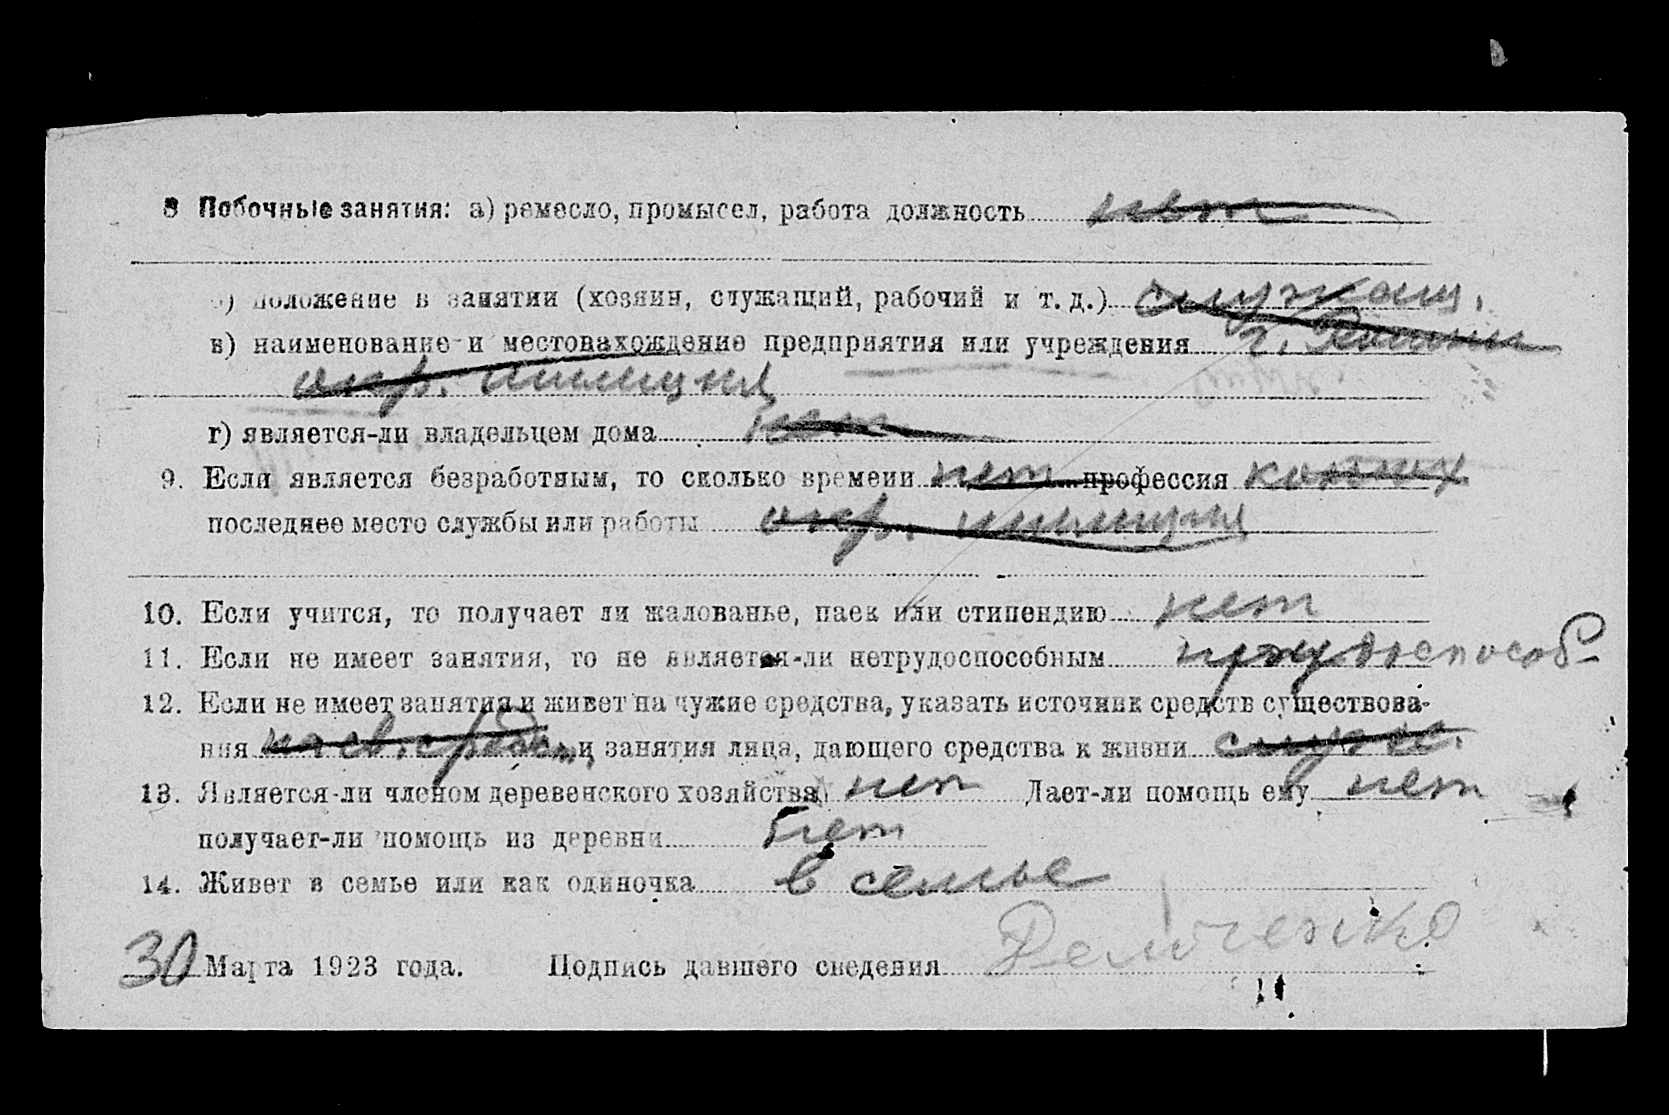 8 Побочные занятия: а) ремесло, промысел, работа должность нет
б) положение в занятии (хозяин, служащий, рабочий и т. д.) служащ.
в) наименование и местонахождение предприятия или учреждения г.
окр. милиция
г) является-ли владельцем дома нет
9. Если является безработным, то сколько времени нет профессия
последнее место службы или работы окр. милиция
10. Если учится, то получает ли жалованье, паек или стипендию нет
11. Если не имеет занятия, то не является-ли нетрудоспособным трудоспособ-
12. Если не имеет занятия и живет на чужие средства, указать источник средств существова-
ния на св. средст. и занятия лица, дающего средства к жизни служ.
13. Является-ли членом деревенского хозяйства нет Дает-ли помощь ему нет
получает-ли помощь из деревни нет
14. Живет в семье или как одиночка в семье
30 Марта 1923 года. Подпись давшего сведения